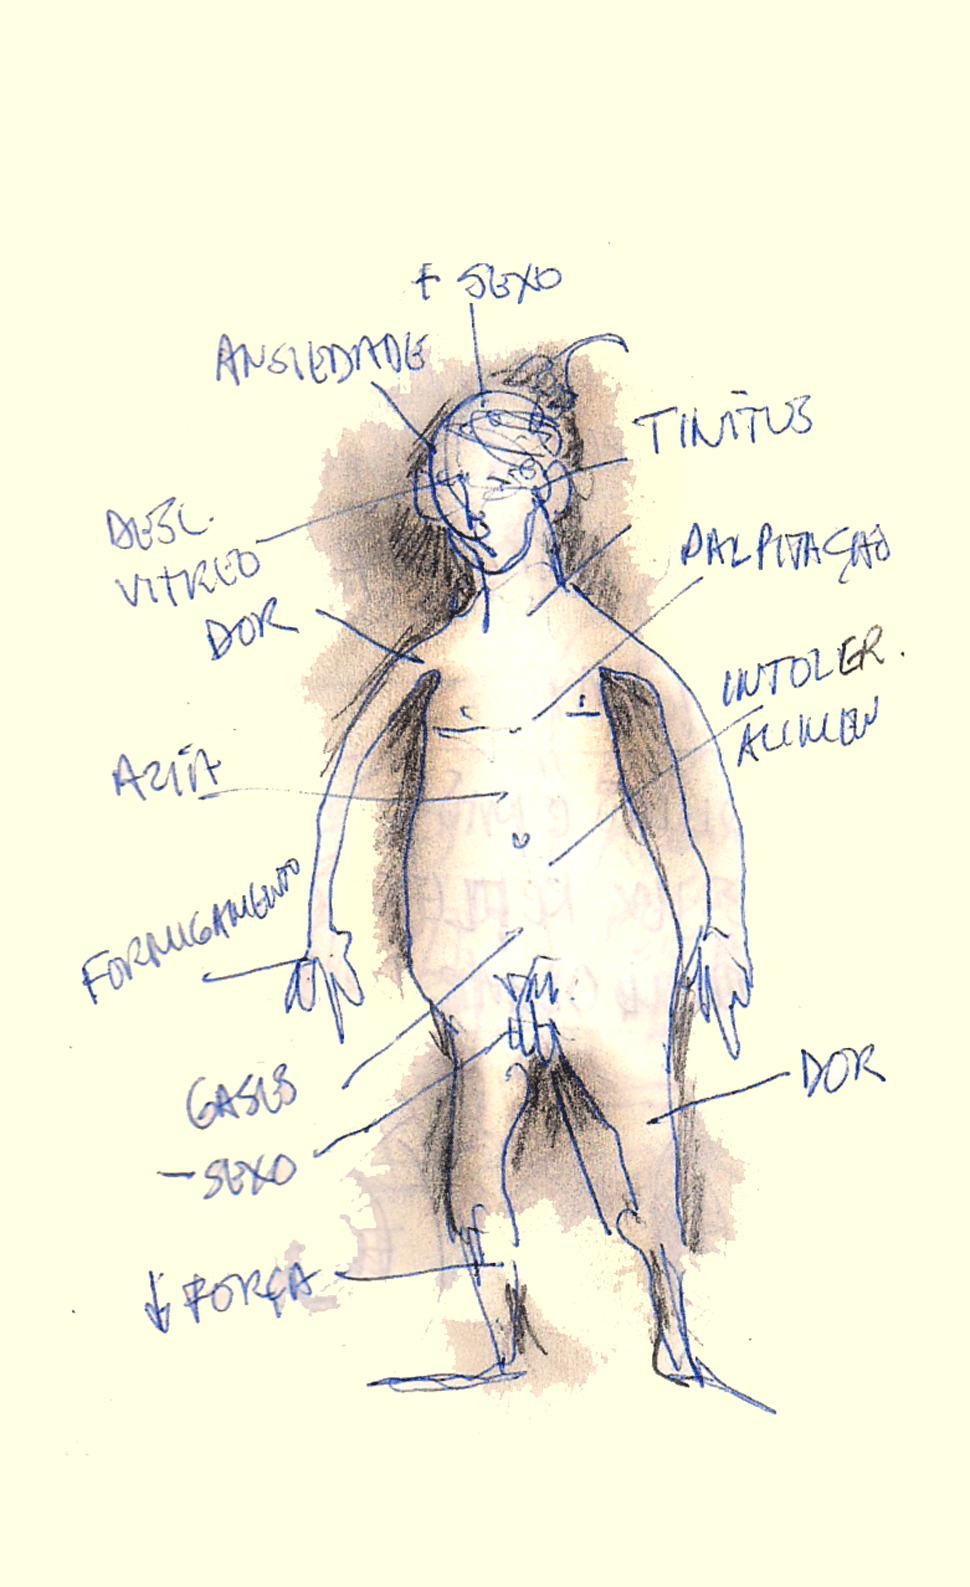 + SEXO
ANSIEDADE
TINITUS
DESC.
VITREO
PALPITAÇÃO
DOR
INTOLER.
ALIMEN
AZIA
FORMIGAMENTO
GASES
DOR
- SEXO
↓ FORÇA